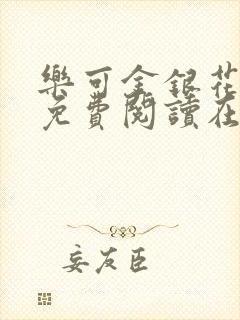 樂可金銀花
免費閱讀在
妄友臣